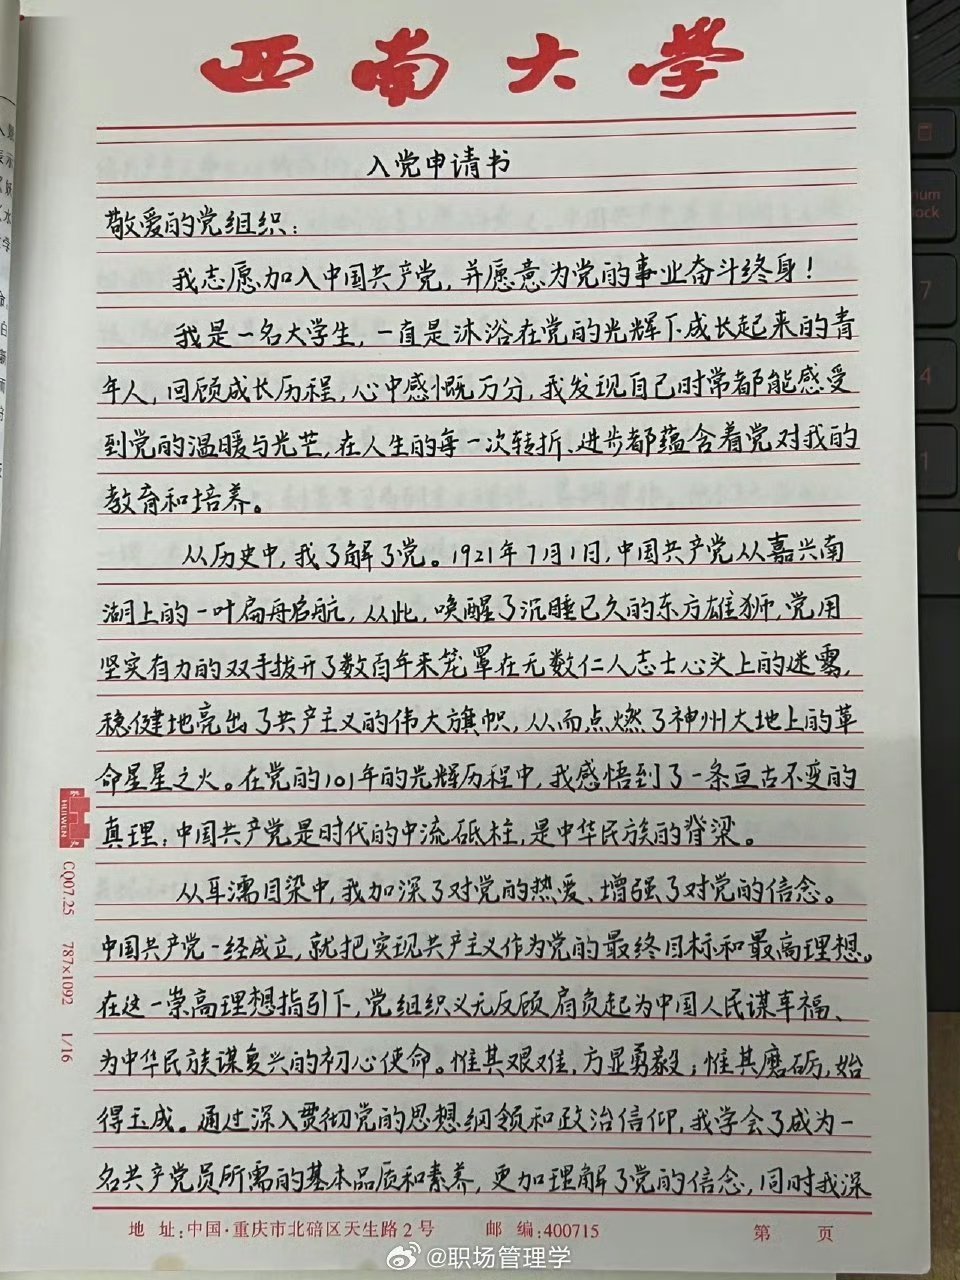 西南大学
入党申请书
敬爱的党组织:
我志愿加入中国共产党,并愿意为党的事业奋斗终身!
我是一名大学生,一直是沐浴在党的光辉下成长起来的青
年人,回顾成长历程,心中感慨万分,我发现自己时常都能感受
到党的温暖与光芒,在人生的每一次转折、进步都蕴含着党对我的
教育和培养。
从历史中,我了解了党。1921年7月1日,中国共产党从嘉兴南
湖上的一叶扁舟启航,从此,唤醒了沉睡已久的东方雄狮,党用
坚实有力的双手拔开了数百年来笼罩在无数仁人志士心头上的迷雾,
稳健地亮出了共产主义的伟大旗帜,从而点燃了神州大地上的革
命星星之火。在党的101年的光辉历程中,我感悟到了一条亘古不变的
真理:中国共产党是时代的中流砥柱,是中华民族的脊梁。
从耳濡目染中,我加深了对党的热爱、增强了对党的信念。
中国共产党一经成立,就把实现共产主义作为党的最终目标和最高理想。
在这一崇高理想指引下,党组织义无反顾肩负起为中国人民谋幸福、
为中华民族谋复兴的初心使命。惟其艰难,方显勇毅;惟其磨砺,始
得玉成。通过深入贯彻党的思想纲领和政治信仰,我学会了成为一
名共产党员所需的基本品质和素养,更加理解了党的信念,同时我深
地 址:中国·重庆市北碚区天生路2号 邮 编:400715 第 页
HUIWEN
CQ07.25 787×1092 1/16
num
lock
7
4
1
@职场管理学